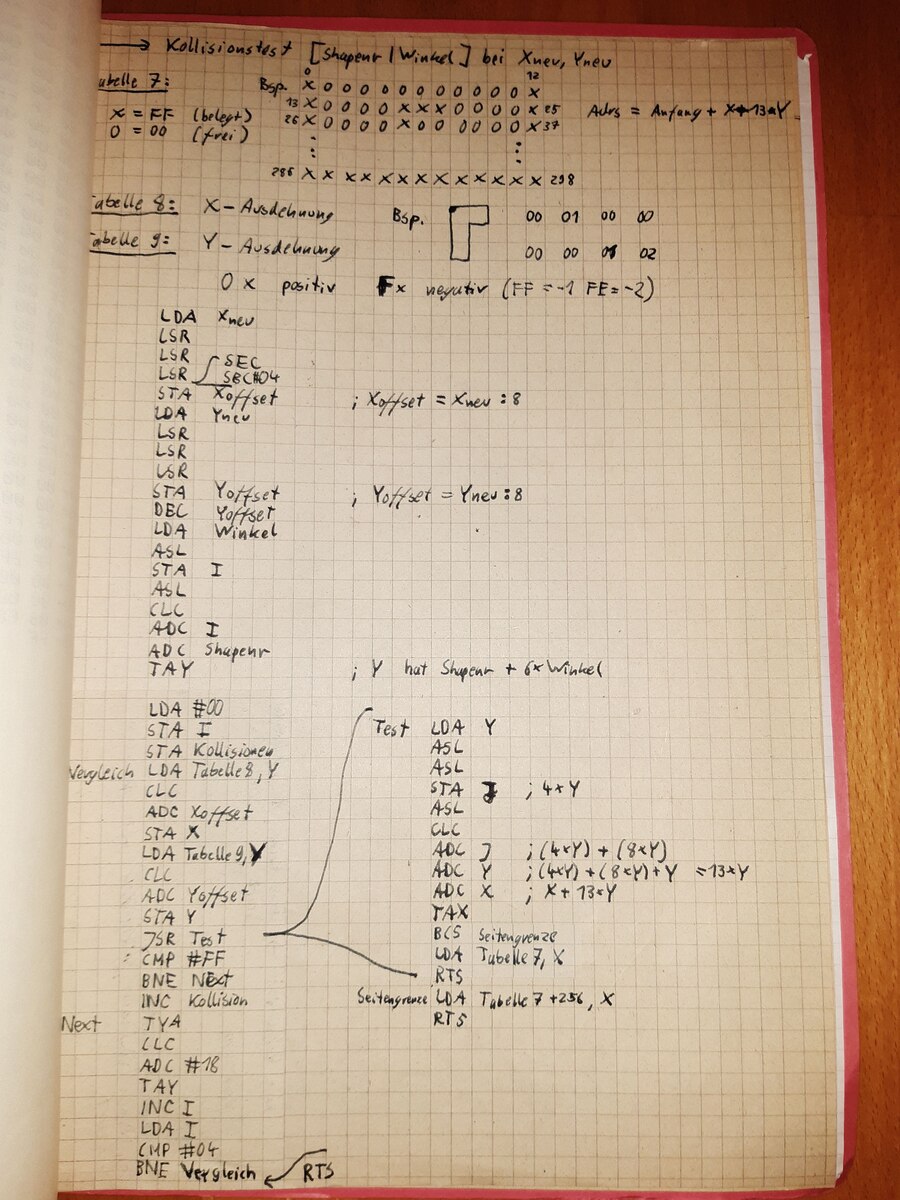 → Kollisionstest [Shapenr | Winkel] bei Xneu, Yneu
Tabelle 7:
x = FF (belegt)
0 = 00 (frei)
0 12
Bsp. X 0 0 0 0 0 0 0 0 0 0 0 X
13 X 0 0 0 0 X X X 0 0 0 0 X 25
26 X 0 0 0 0 X 0 0 0 0 0 0 X 37
286 X X X X X X X X X X X X X 298
Adrs = Anfang + X+13*Y
Tabelle 8: X-Ausdehnung
Tabelle 9: Y-Ausdehnung
Bsp. 00 01 00 00
00 00 01 02
0x positiv Fx negativ (FF = -1 FE = -2)
LDA Xneu
LSR
LSR
LSR
SEC
SBC #04
STA Xoffset ; Xoffset = Xneu : 8
LDA Yneu
LSR
LSR
LSR
STA Yoffset ; Yoffset = Yneu : 8
DEC Yoffset
LDA Winkel
ASL
STA I
ASL
CLC
ADC I
ADC Shapenr
TAY ; Y hat Shapenr + 6x Winkel
LDA #00
STA I
STA Kollisionen
Vergleich LDA Tabelle 8, Y
CLC
ADC Xoffset
STA X
LDA Tabelle 9, Y
CLC
ADC Yoffset
STA Y
JSR Test
CMP #FF
BNE Next
INC Kollision
Next TYA
CLC
ADC #18
TAY
INC I
LDA I
CMP #04
BNE Vergleich
RTS
Test LDA Y
ASL
ASL
STA J ; 4*Y
ASL
CLC
ADC J ; (4*Y) + (8*Y)
ADC Y ; (4*Y) + (8*Y) + Y = 13*Y
ADC X ; X + 13*Y
TAX
BCS Seitengrenze
LDA Tabelle 7, X
RTS
Seitengrenze LDA Tabelle 7 +256, X
RTS